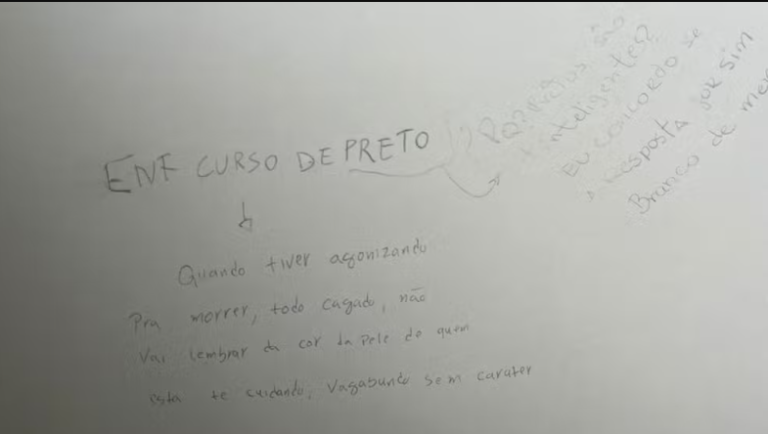 ENF CURSO DE PRETO
Pq? Pretos são
inteligentes?
EU CONCORDO se
A Resposta for sim
Branco de
Quando tiver agonizando
Pra morrer, todo cagado, não
Vai lembrar da cor da pele do quem
está te cuidando, Vagabundo sem carater